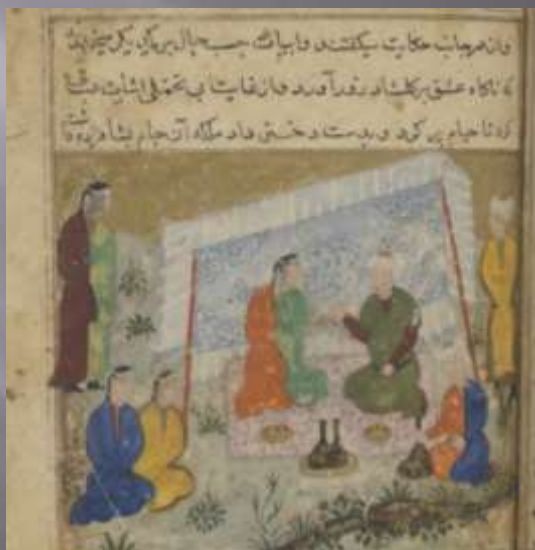 واز هرجانب حکایت میگفتند و ابیات حسب حال بر یکدیکر میخواندند
تا ناکاه عشق بر کلشاه زور آورد و از غایت بی تحملی
کرد تا جام پر کرد و بدست دختری داد که آن جام بشاه